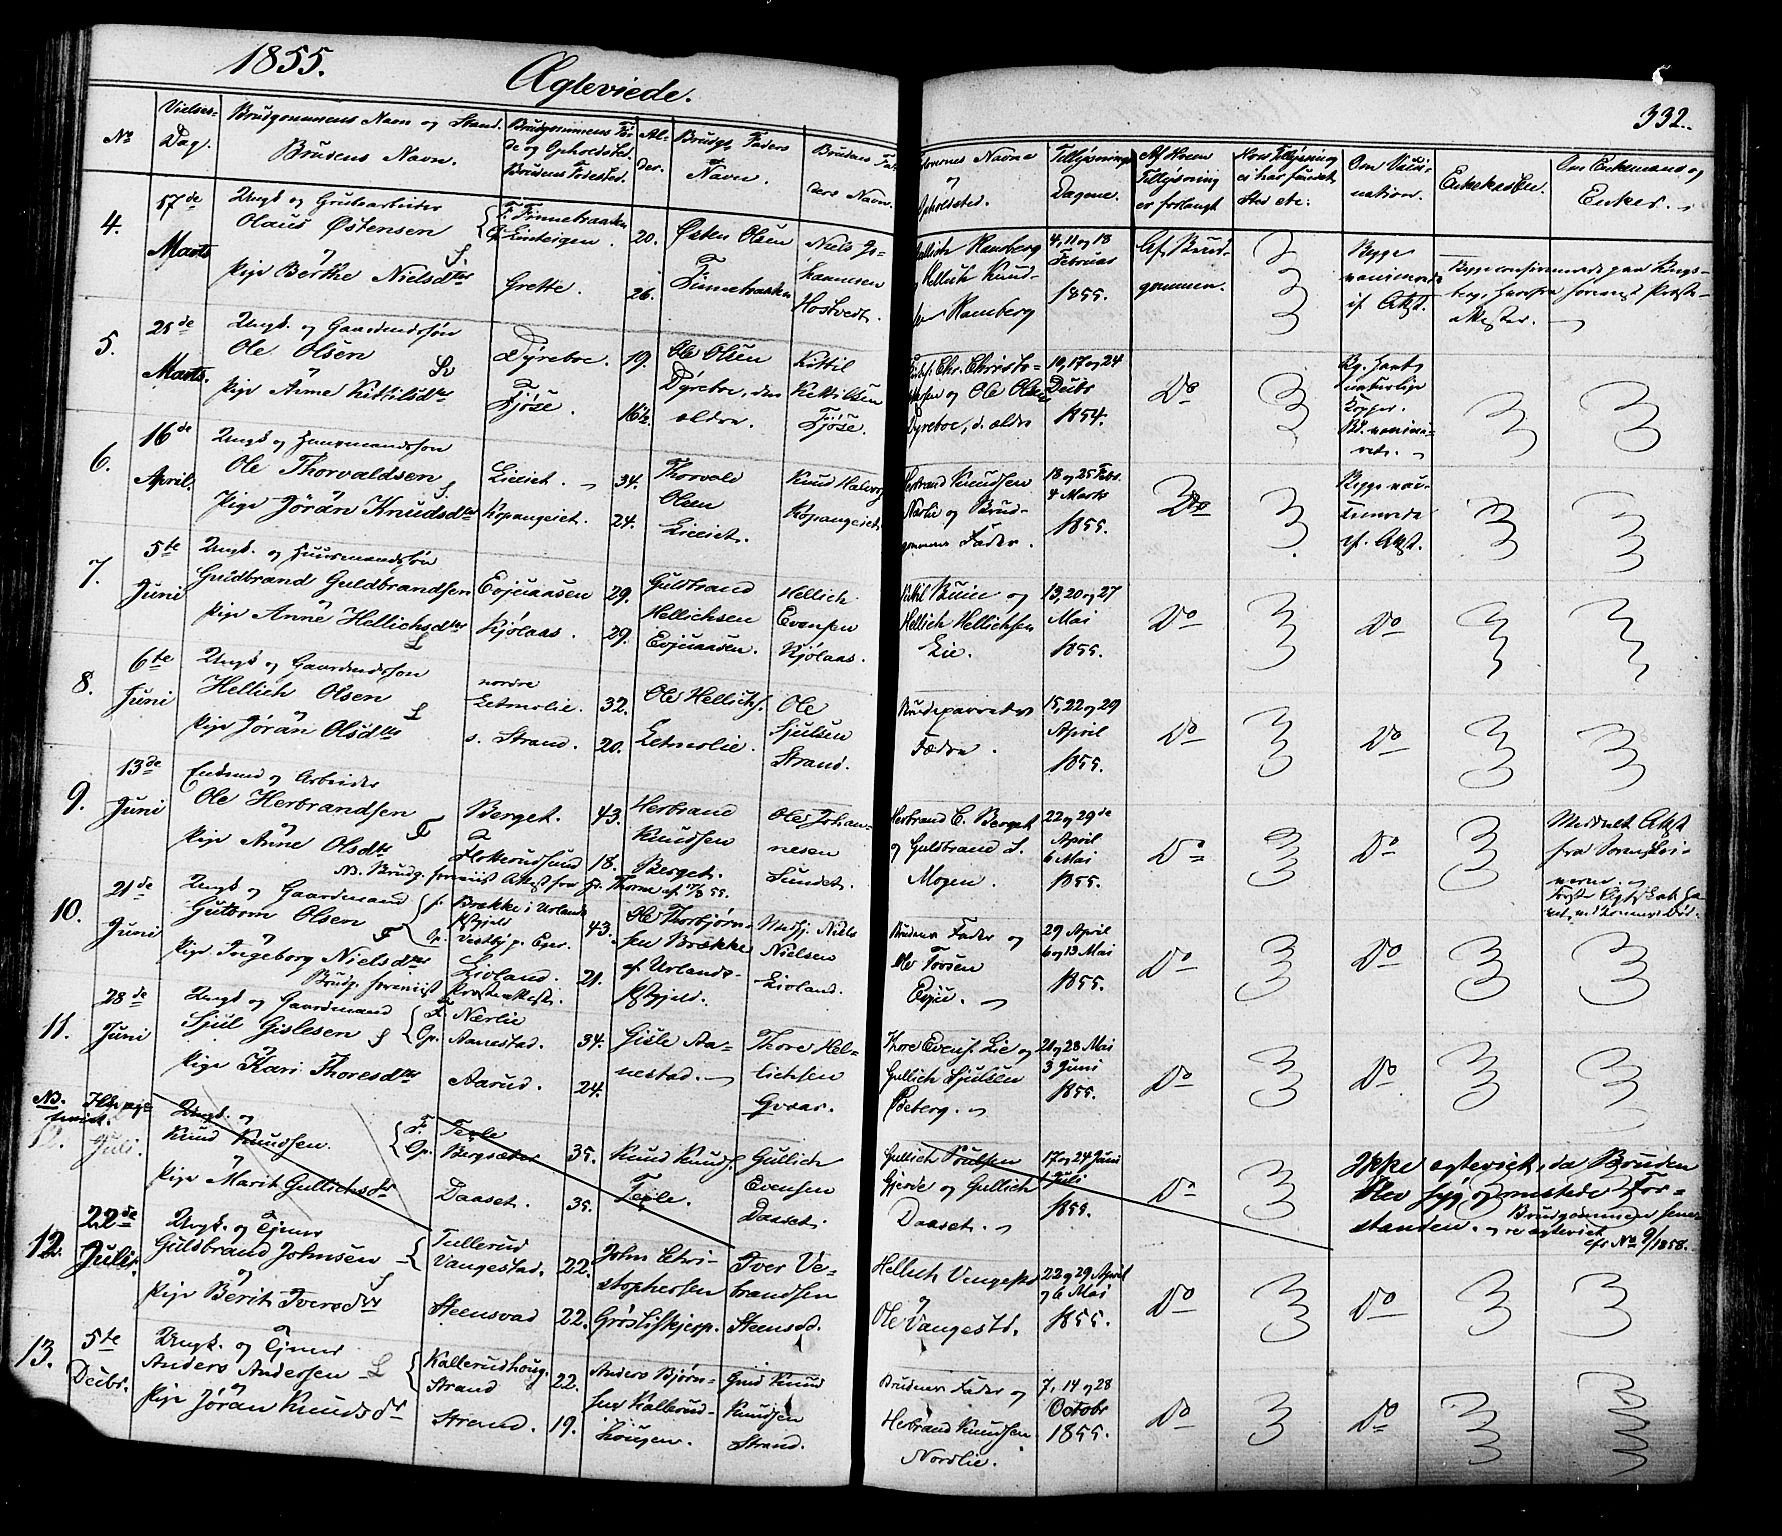 1855.
Ægteviede.
332.
No
Vielses-
Dag.
Brudgommens Navn og Stand.
Brudens Navn.
Brudgommens Fø-
de og Opholdsted.
Brudens Fødested.
Al-
der.
Brudgs Faders
Navn.
Brudens Fa-
ders Navn.
Forlovernes Navne
og
Opholdsted.
Tillysnings
Dagene.
Af Hvem
Tillysning
er forlangt
Hvis Tillysning
ei har fundet
Sted etc:
Om Vakci-
nation.
Om Enkemand og
Enker.
4.
17de
Marts
Ungk og Grubearbeider
Olaus Østensen
og
Pige Berthe Nielsdtr
F. Finnebraaten
Grette.
20.
26.
Østen Olsen
Finnebraaten
Niels Jo-
hannesen
Hostvedt.
Gullich Hamberg
og Hellich Knud-
sen Hamberg
4, 11 og 18
Februar
1855.
Af Brud-
gommen.
Begge
vaccinerede
if. Attst.
5.
Marts.
Ungk. og Gaardmdssøn
Ole Olsen
og
Pige Anne Kittilsdtr
Dyreboe.
Fjøse.
19.
16½
Ole Olsen
Dyreboe, den
ældre.
Kittil
Kittilsen
Fjøse.
Chr. Christo-
hersen og Ole Olsen
Dyreboe, d. ældre
10, 17 og 24
Decbr
1854.
Do
Bg. havt
naturlige
Kopper.
Bd. vaccine-
ret.
6.
16de
April.
Ungk og Huusmandssøn
Ole Thorvaldsen
og
Pige Jøran Knudsdtr
Lieeiet.
Kopangeiet.
34.
24.
Thorvald
Olsen
Lieeiet.
Knud Halvors
Kopangeiet.
Herbrand Knudsen
Nærlie og Brud-
gommens Fader.
18 og 25 Febr.
4 Marts
1855.
Do
Begge vac-
cinerede
if. Attst.
7.
5te
Juni
Ungk. og Huusmandssøn
Guldbrand Guldbrandsen
og
Pige Anne Hellichsdtr
Evjuaasen
Kjølaas.
29.
29.
Guldbrand
Hellichsen
Evjuaasen.
Hellich
Evensen
Kjølaas.
og
Hellich Hellichsen
Lie.
13, 20 og 27
Mai
1855.
Do
Do
8.
6te
Juni
Ungk og Gaardmdssøn
Hellich Olsen
og
Pige Jøran Olsdtr
nordre
s. Strand.
32.
20.
Ole Hellichs.
Ole
Sjulsen
Strand.
Brudeparrets
Fædre.
15, 22 og 29
April
1855.
Do
Do
9.
13de
Juni
Enkemd og Arbeider
Ole Herbrandsen
og
Pige Anne Olsdtr
Berget.
43.
18.
Herbrand
Knudsen
Berget.
Ole Johan-
nesen
Sundet.
Herbrand C. Berget
og Guldbrand L.
Mogen.
22 og 29de
April
6 Mai
1855.
Do
Do
Meddelt Attst
fra
10.
21de
Juni
Ungk og Gaardmand
Guttorm Olsen
og
Pige Ingeborg Nielsdtr
Brudg. foreviist Præsteattest.
F.
Op.
Brække i Urlands
Præstgjeld
Vestby p. Eger.
Livland.
43.
21.
Ole Thorbjørn-
sen Brække
af Urlands-
Præstgjeld.
Niels
Nielsen
Livland.
Brudens Fader og
Ole Torsen
Evju.
29 April
6 og 13 Mai
1855.
Do
Do
11.
28de
Juni
Ungk og Gaardmand
Sjul Gislesen
og
Pige Kari Thoresdtr
F.
Op.
Nærlie
Aanestad.
Aarud.
34.
24.
Gisle Aa-
nestad.
Thore Hel-
lichsen
Thore Evens. Lie og
Gullich Sjulsen
Ødeberg.
21 og 28 Mai
3 Juni
1855.
Do
Do
NB.
12.
Juli.
Ungk. og
Knud Knudsen.
og
Pige Marit Gullichsdtr
F.
Op.
Teple
Bergsæter
Daaset.
35.
35.
Knud Knuds.
Teple.
Gullich
Evensen
Daaset.
Gullich Poulsen
Gjerde og Gullich
Daaset.
17 og 24 Juni
1 Juli
1855.
Do
Ikke ægteviet, da Bruden
blev syg og mistede For-
standen.
cfr No 9/1858.
12.
22de
Juli.
Ungk. og Tjener
Guldbrand Johnsen
og
Pige Berit Iversdtr
Tullerud
Vangestad.
Steensvad
22.
22.
John Chri-
stophersen
Iver Ve-
brandsen
Hellich Vangestd
og
Ole Vangestd.
22 og 29 April
og 6 Mai
1855.
Do
Do
13.
5te
Decbr.
Ungk. og Tjener
Anders Andersen
og
Pige Jøran Knudsdtr
Kallerudhoug.
Strand
Strand.
22.
19.
Anders Bjørn-
sen Kallerud-
hougen.
Gmd Knud
Knudsen
Strand.
Brudens Fader og
Herbrand Knudsen
Nordlie.
7, 14 og 28
Octobr
1855.
Do
Do